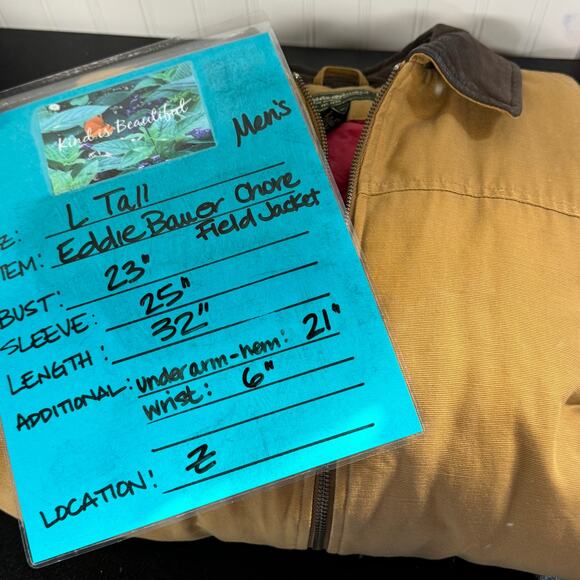 Kind is Beautiful
Men's
Z: L Tall
TEM: Eddie Bauer Chore
Field Jacket
BUST: 23"
SLEEVE: 25"
LENGTH: 32"
ADDITIONAL: underarm-hem: 21"
wrist: 6"
LOCATION: Z